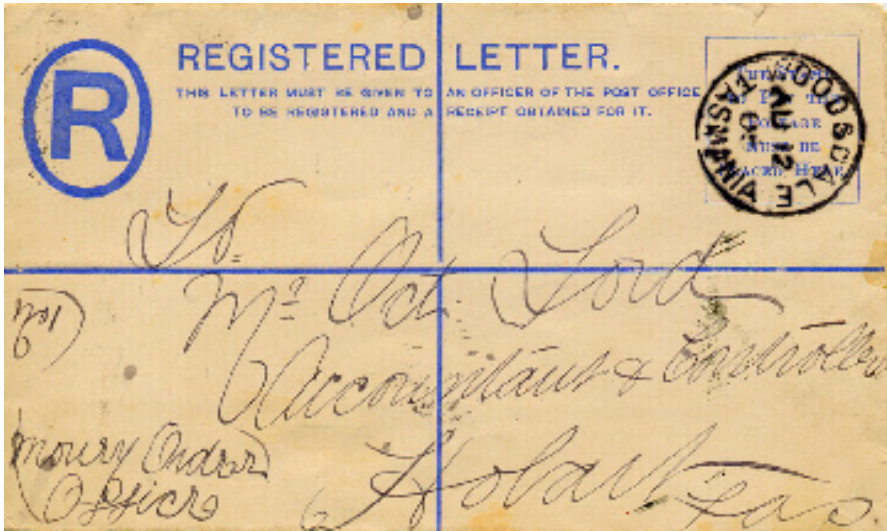 R
REGISTERED LETTER.
THIS LETTER MUST BE GIVEN TO AN OFFICER OF THE POST OFFICE
TO BE REGISTERED AND A RECEIPT OBTAINED FOR IT.
THE STAMP
TO PAY THE
POSTAGE
MUST BE
PLACED HERE
WOODSDALE
AU 12
05
TASMANIA
To
Mr Oct. Lord
Accountant & Controller
Hobart
Tas
Money Order
Office